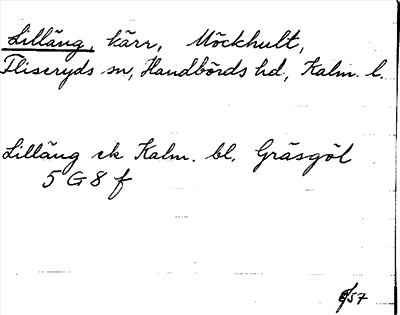 Lilläng, kärr, Möckhult,
Fliseryds sn, Handbörds hd, Kalm. l.
Lilläng ek Kalm. bl. Gräsgöl
5 G 8 f
57